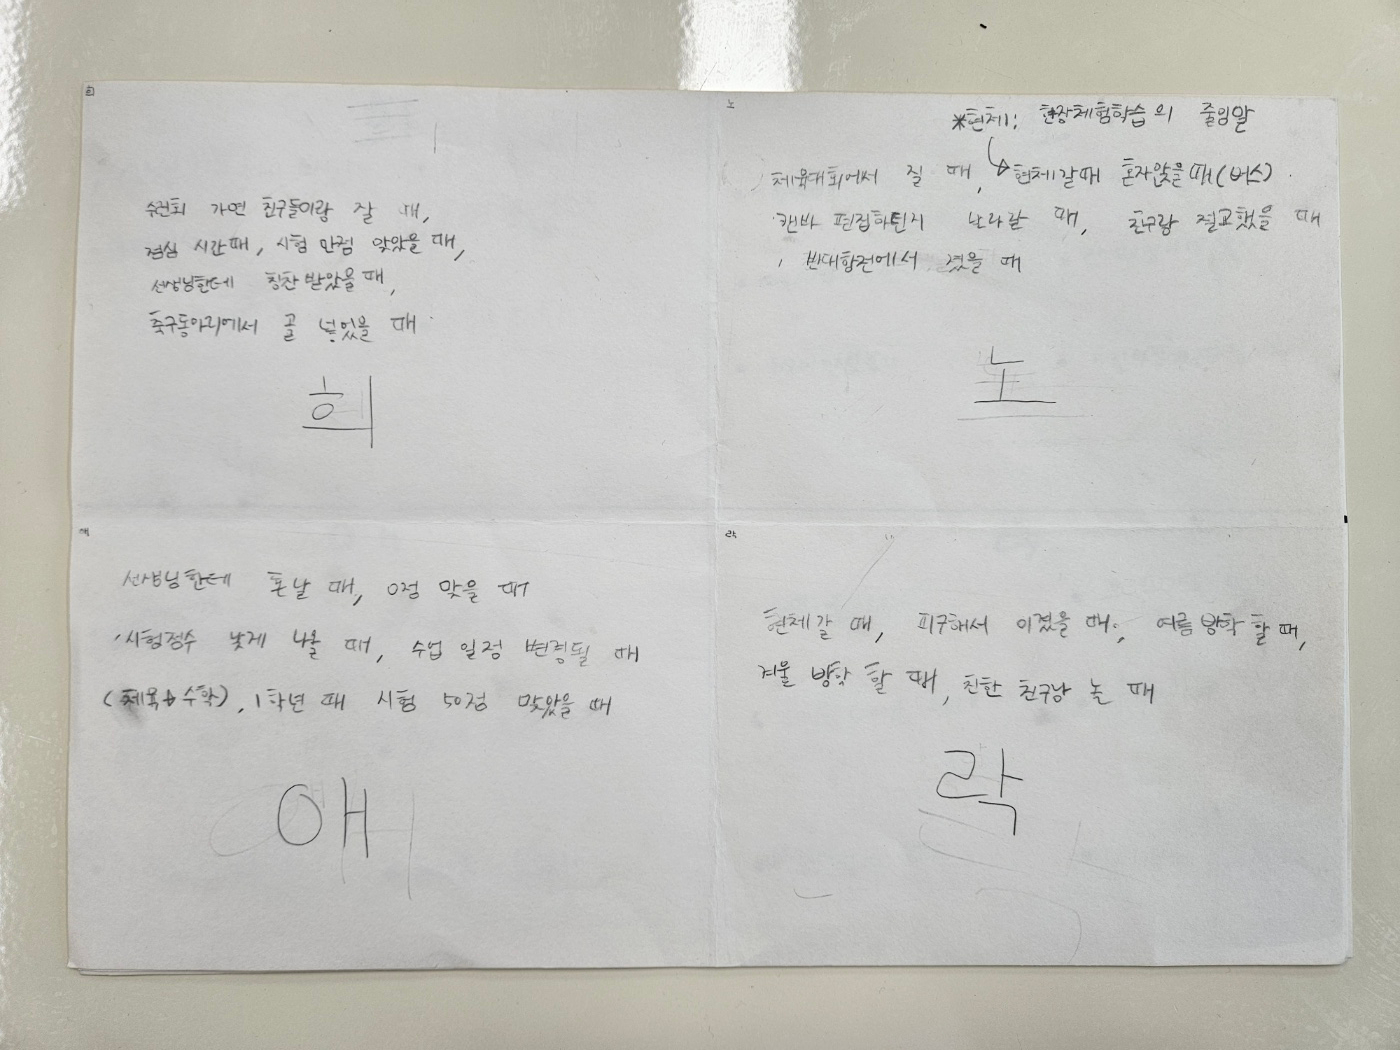 희
수련회 가면 친구들이랑 잘 때,
점심 시간때, 시험 만점 맞았을 때,
선생님한테 칭찬 받았을 때,
축구동아리에서 골 넣었을 때
희
노
*현체: 현장체험학습의 줄임말
체육대회에서 질 때, 현체갈때 혼자앉을때(버스)
캔바 편집하던지 날라갈 때, 친구랑 절교했을 때
, 반대항전에서 졌을 때
노
애
선생님한테 혼날 때, 0점 맞을 때
시험점수 낮게 나올 때, 수업 일정 변경될 때
(체육→수학), 1학년 때 시험 50점 맞았을 때
애
락
현체갈 때, 피구해서 이겼을 때, 여름방학 할 때,
겨울 방학 할 때, 친한 친구랑 놀 때
락